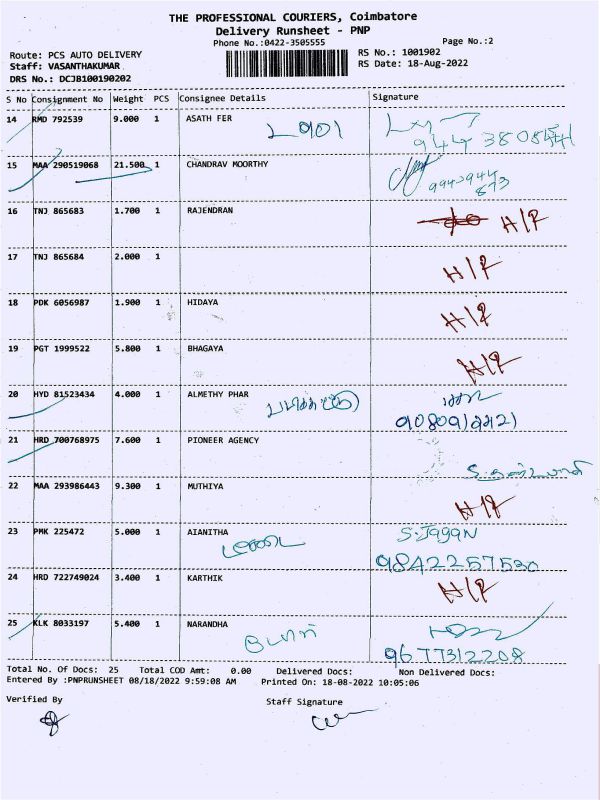 THE PROFESSIONAL COURIERS, Coimbatore
Delivery Runsheet - PNP
Phone No.:0422-3505555
Page No.:2
Route: PCS AUTO DELIVERY
RS No.: 1001902
Staff: VASANTHAKUMAR
RS Date: 18-Aug-2022
DRS No.: DCJB100190202
S No Consignment No Weight PCS Consignee Details Signature
14 RMD 792539 9.000 1 ASATH FER
15 MAA 290519068 21.500 1 CHANDRAV MOORTHY
16 TNJ 865683 1.700 1 RAJENDRAN H/P
17 TNJ 865684 2.000 1 H/P
18 PDK 6056987 1.900 1 HIDAYA H/P
19 PGT 1999522 5.800 1 BHAGAYA H/P
20 HYD 81523434 4.000 1 ALMETHY PHAR
21 HRD 700768975 7.600 1 PIONEER AGENCY
22 MAA 293986443 9.300 1 MUTHIYA H/P
23 PMK 225472 5.000 1 AIANITHA S.Jagan
9842257530
24 HRD 722749024 3.400 1 KARTHIK H/P
25 KLK 8033197 5.400 1 NARANDHA
9677312208
Total No. Of Docs: 25 Total COD Amt: 0.00 Delivered Docs: Non Delivered Docs:
Entered By :PNPRUNSHEET 08/18/2022 9:59:08 AM Printed On: 18-08-2022 10:05:06
Verified By Staff Signature